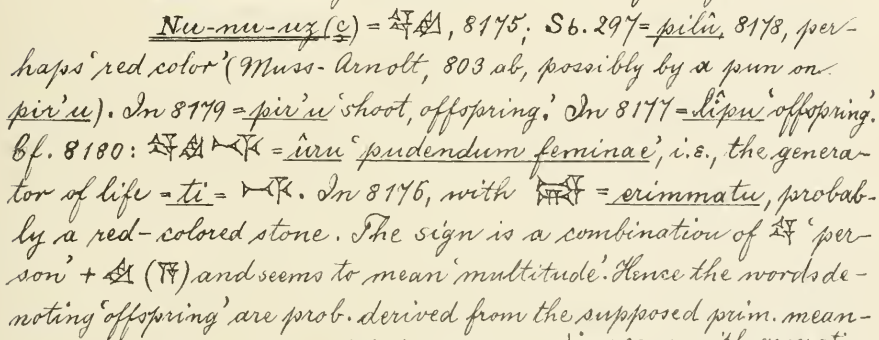 Nu-nu-uz(ç) = 𒉭, 8175; Sb. 297 = pilû, 8178, per-
haps 'red color' (Muss-Arnolt, 803 ab, possibly by a pun on
pir'u). In 8179 = pir'u 'shoot, offspring.' In 8177 = lîpu 'offspring.'
Cf. 8180: = ûru 'pudendum feminae', i.e., the genera-
tor of life = ti = . In 8176, with = erimmatu, probab-
ly a red-colored stone. The sign is a combination of 'per-
son' + ( ) and seems to mean 'multitude'. Hence the words de-
noting 'offspring' are prob. derived from the supposed prim. mean-